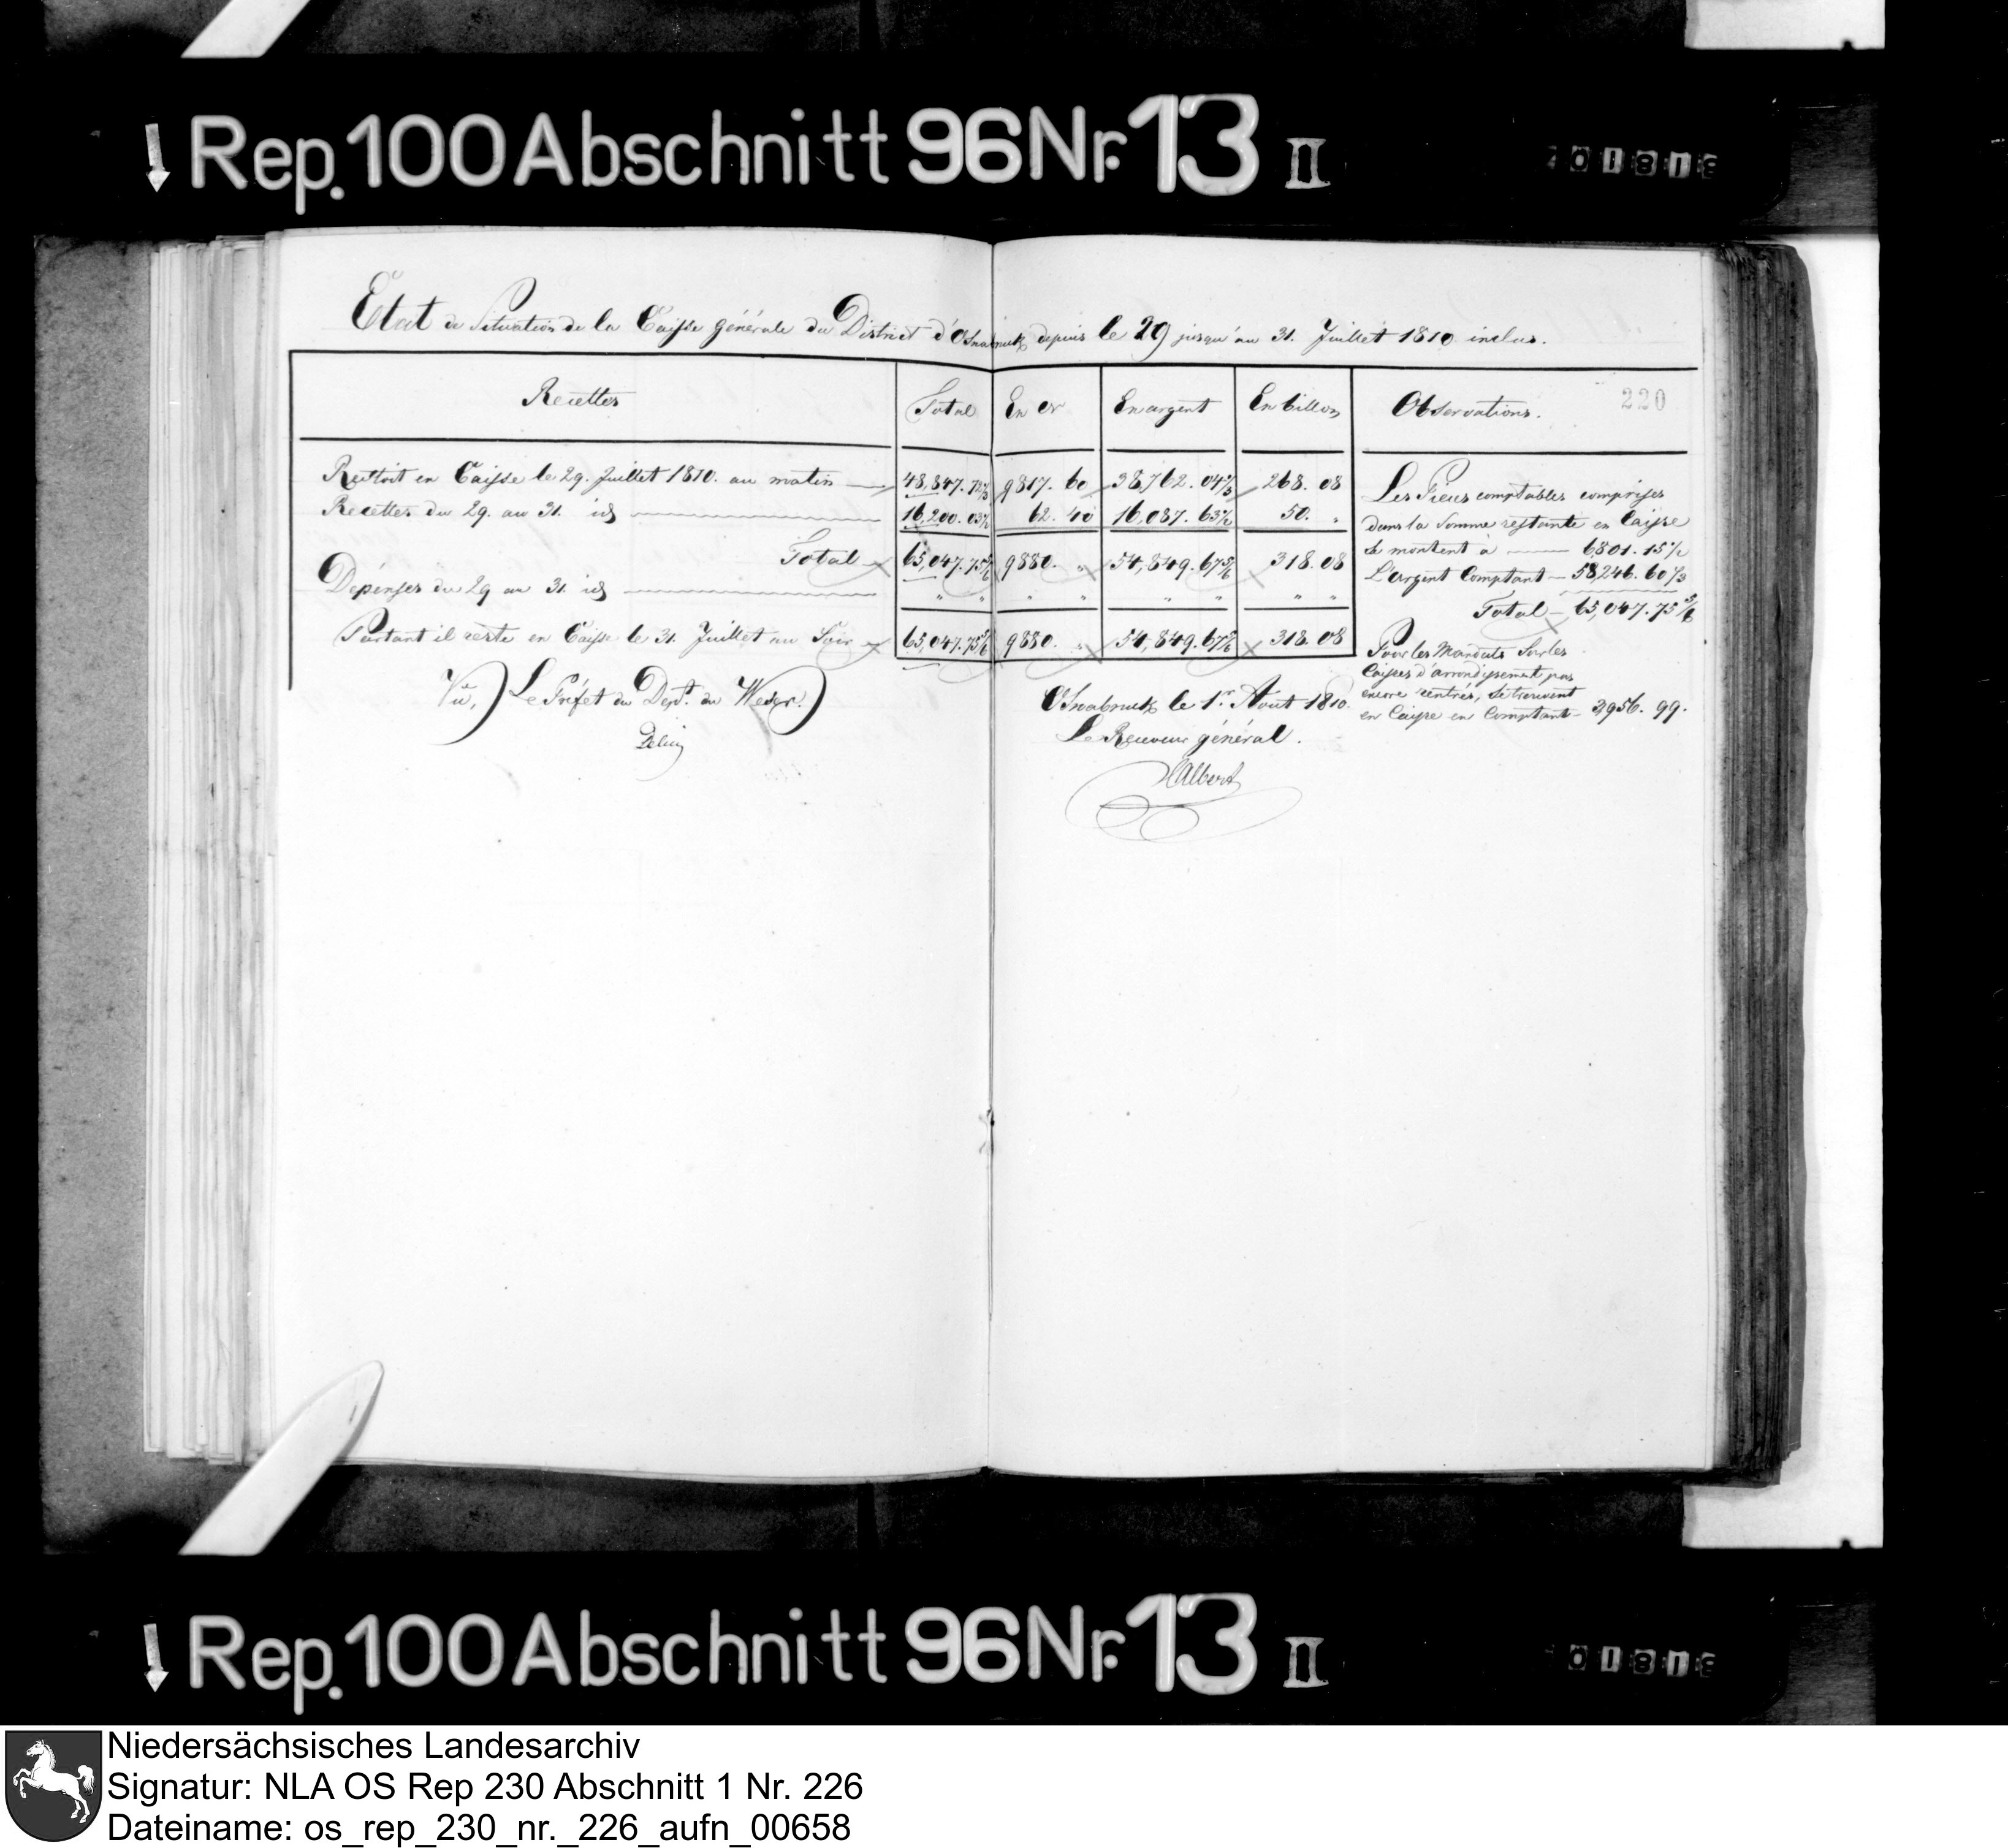 Rep. 100 Abschnitt 96 Nr. 13 II
Etat de Situation de la Caisse générale du District d'Osnabruck depuis le 29 jusqu'au 31. Juillet 1810 inclus.
Recettes Total En or En argent En billon Observations. 220
Restoit en Caisse le 29. Juillet 1810. au matin 48,847. 72 2/3 9817. 60 38,762. 04 2/3 268. 08
Recettes du 29. au 31. id 16,200. 03 1/6 62. 40 16,087. 63 1/6 50. "
Total 65,047. 75 5/6 9880. " 54,849. 67 5/6 318. 08
Dépenses du 29 au 31. id " " " " " " " "
Partant il reste en Caisse le 31. Juillet au Soir 65,047. 75 5/6 9880. " 54,849. 67 5/6 318. 08
Les Pieces comptables comprises
dans la Somme restante en Caisse
Se montent à 6,801. 15 1/2
L'argent Comptant 58,246. 60 1/3
Total 65,047. 75 5/6
Pour les Mandats Sur les
Caisses d'arrondissement pas
encore rentrés, Se trouvent
en Caisse en Comptant 3,956. 99.
Vu, Le Préfet du Dept. du Weser.
Delius
Osnabruck le 1r. Aout 1810.
Le Receveur général.
Albert
Rep. 100 Abschnitt 96 Nr. 13 II
Niedersächsisches Landesarchiv
Signatur: NLA OS Rep 230 Abschnitt 1 Nr. 226
Dateiname: os_rep_230_nr._226_aufn_00658